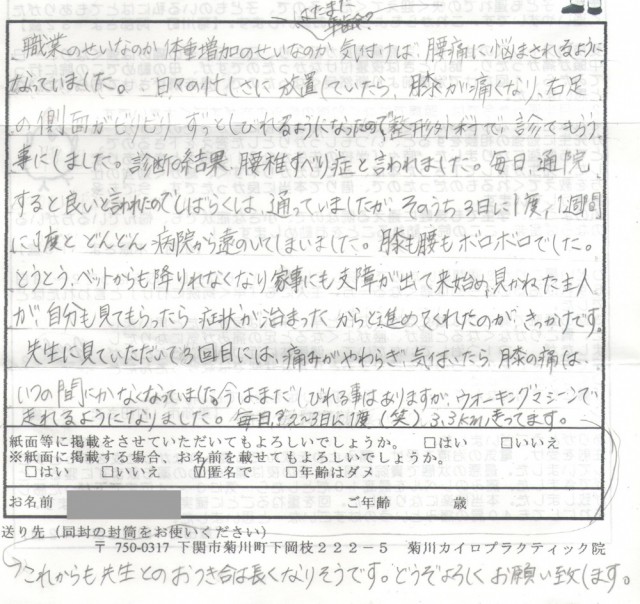 はたまた
年齢?
職業のせいなのか 体重増加のせいなのか 気付けば、腰痛に悩まされるように
なっていました。 日々の忙しさに 放置していたら、膝が痛くなり、右足
の側面がビリビリ ずっとしびれるようになったので、整形外科で 診てもらう
事にしました。診断の結果、腰椎すべり症と言われました。毎日、通院
すると良いと言われたのでしばらくは、通っていましたが、そのうち3日に1度、1週間
に1度と どんどん 病院から遠のいてしまいました。膝も腰も ボロボロでした。
とうとう、ベットからも降りれなくなり 家事にも支障が出て来始め、見かねた主人
が、自分も見てもらったら 症状が治まった からと進めてくれたのが、きっかけです。
先生に見ていただいて3回目には、痛みがやわらぎ、気付いたら、膝の痛は、
いつの間にかなくなっていました。今はまだしびれる事はありますが、ウオーキングマシーンで
走れるようになりました。毎日?2〜3日に1度(笑) 3.3km走ってます。
紙面等に掲載をさせていただいてもよろしいでしょうか。 □はい □いいえ
※紙面に掲載する場合、お名前を載せてもよろしいでしょうか。
□はい □いいえ ☑匿名で □年齢はダメ
お名前 ご年齢 歳
送り先(同封の封筒をお使いください)
〒 750-0317 下関市菊川町下岡枝222−5 菊川カイロプラクティック院
これからも先生との おつき合は長くなりそうです。どうぞよろしく お願い致します。